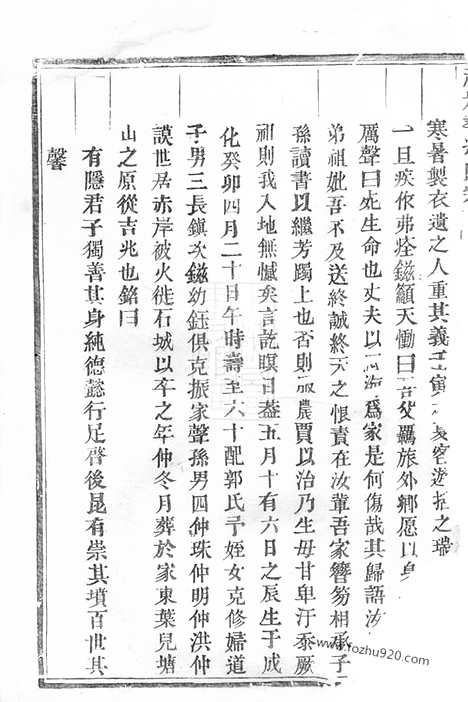 寒暑製衣遺之人重其義壬寅 長客遊 之瑞
一旦疾作弗痊鎡籲天慟曰吾父羈旅外鄉愿以身
厲聲曰死生命也丈夫以四海爲家是何傷哉其歸語汝
弟祖妣吾不及送終誠終天之恨責在汝輩吾家簪笏相承子
孫讀書以繼芳躅上也否則 農賈以治乃生毋甘卑汙忝厥
祖則我入地無憾矣言訖瞑目蓋五月十有六日之辰生于成
化癸卯四月二十日午時壽至六十配郭氏予姪女克修婦道
子男三長鎮次鎡幼鈺俱克振家聲孫男四仲珠仲明仲洪仲
謨世居赤岸被火徙石城以卒之年仲冬月葬於家東葉兒塘
山之原從吉兆也銘曰
有隱君子獨善其身純德懿行足啓後昆有崇其墳百世其
馨
www.fozhu920.com